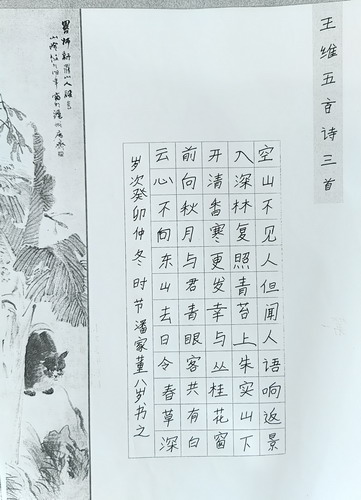 王维五言诗三首
空山不见人但闻人语响返景
入深林复照青苔上朱实山下
开清香寒更发幸与丛桂花窗
前向秋月与君青眼客共有白
云心不向东山去日令春草深
岁次癸卯仲冬时节潘家堇八岁书之